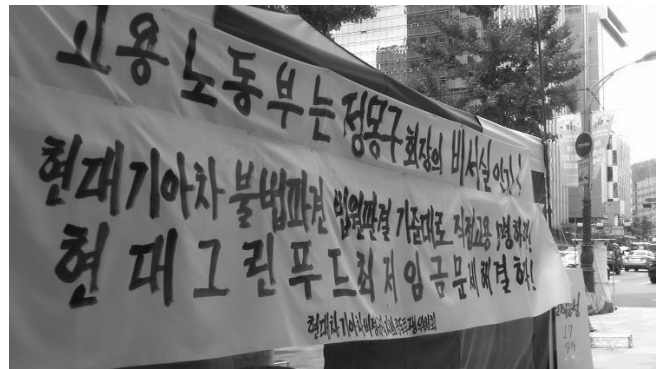 고용노동부는 정몽구 회장의 비서실인가!
현대기아차 불법파견 법원판결 기준대로 직접고용 명령하라!
현대그린푸드 최저임금 문제 해결하라!
현대차기아차비정규직
17